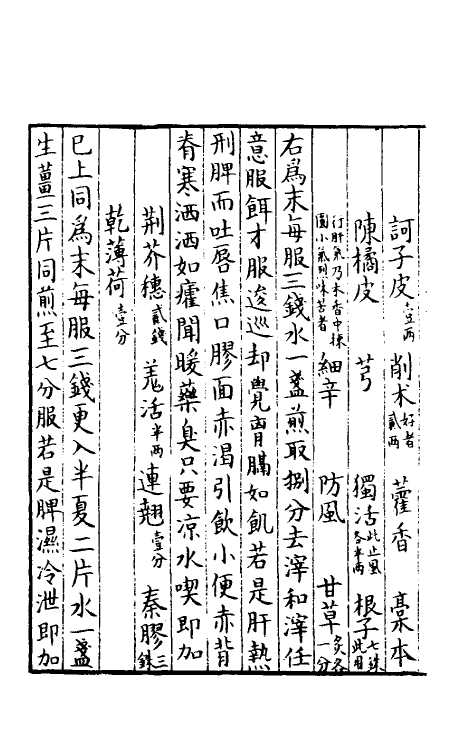 訶子皮壹兩　削术好者貳兩　藿香　藁本
陳橘皮　芎　獨活此止風各半兩　根子七銖此用
行肝氣乃木香中揀圓小氣烈味苦者　細辛　防風　甘草炙各一分
右爲末每服三錢水一盞煎取捌分去滓和滓任
意服餌才服逡巡却覺胃膈如飢若是肝熱
刑脾而吐唇焦口膠面赤渴引飲小便赤背
脊寒洒洒如瘧聞暖藥臭只要凉水喫即加
荆芥穗貳錢　羗活半兩　連翹壹分　秦膠三銖
乾薄荷壹分
巳上同爲末每服三錢更入半夏二片水一盞
生薑三片同煎至七分服若是脾濕冷泄即加